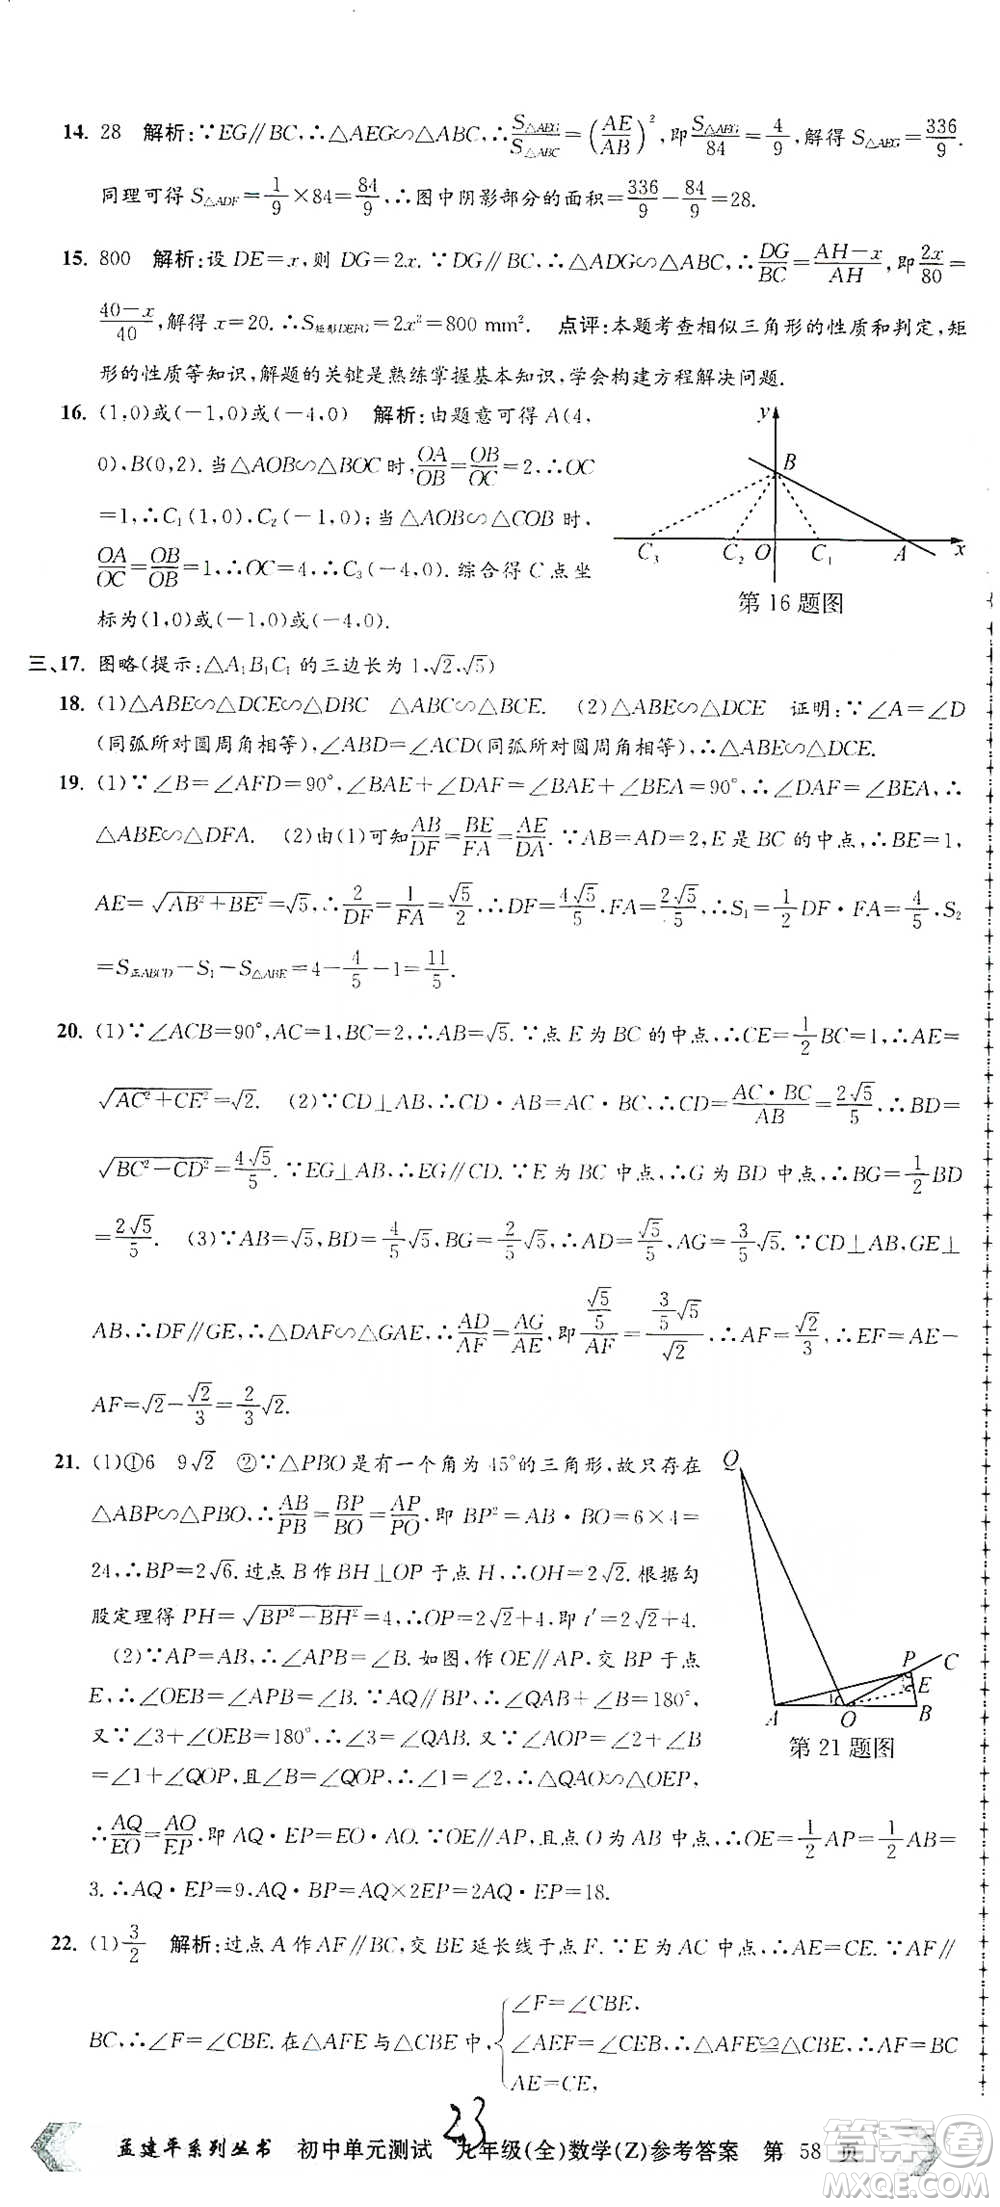 14. 28 解析:∵EG∥BC,∴△AEG∽△ABC,∴S△AEG/S△ABC=(AE/AB)²,即S△AEG/84=4/9,解得S△AEG=336/9.
同理可得S△ADF=1/9×84=84/9,∴图中阴影部分的面积=336/9-84/9=28.
15. 800 解析:设DE=x,则DG=2x.∵DG∥BC,∴△ADG∽△ABC,∴DG/BC=(AH-x)/AH,即2x/80=
(40-x)/40,解得x=20.∴S矩形DEFG=2x²=800 mm². 点评:本题考查相似三角形的性质和判定,矩
形的性质等知识,解题的关键是熟练掌握基本知识,学会构建方程解决问题.
16. (1,0)或(-1,0)或(-4,0) 解析:由题意可得A(4,
0),B(0,2).当△AOB∽△BOC时,OA/OB=OB/OC=2,∴OC
=1,∴C₁(1,0),C₂(-1,0);当△AOB∽△COB时,
OA/OC=OB/OB=1,∴OC=4,∴C₃(-4,0).综合得C点坐
标为(1,0)或(-1,0)或(-4,0).
y
B
C₃ C₂ O C₁ A x
第16题图
三、17. 图略(提示:△A₁B₁C₁的三边长为1、√2、√5)
18. (1)△ABE∽△DCE∽△DBC △ABC∽△BCE. (2)△ABE∽△DCE 证明:∵∠A=∠D
(同弧所对圆周角相等),∠ABD=∠ACD(同弧所对圆周角相等),∴△ABE∽△DCE.
19. (1)∵∠B=∠AFD=90°,∠BAE+∠DAF=∠BAE+∠BEA=90°,∴∠DAF=∠BEA,∴
△ABE∽△DFA. (2)由(1)可知AB/DF=BE/FA=AE/DA.∵AB=AD=2,E是BC的中点,∴BE=1,
AE=√(AB²+BE²)=√5,∴2/DF=1/FA=√5/2,∴DF=4√5/5,FA=2√5/5,∴S₁=1/2DF·FA=4/5,S₂
=S正ABCD-S₁-S△ABE=4-4/5-1=11/5.
20. (1)∵∠ACB=90°,AC=1,BC=2,∴AB=√5.∵点E为BC的中点,∴CE=1/2BC=1,∴AE=
√(AC²+CE²)=√2. (2)∵CD⊥AB,∴CD·AB=AC·BC,∴CD=AC·BC/AB=2√5/5,∴BD=
√(BC²-CD²)=4√5/5.∵EG⊥AB,∴EG∥CD.∵E为BC中点,∴G为BD中点,∴BG=1/2BD
=2√5/5. (3)∵AB=√5,BD=4/5√5,BG=2/5√5,∴AD=√5/5,AG=3/5√5.∵CD⊥AB,GE⊥
AB,∴DF∥GE,∴△DAF∽△GAE,∴AD/AF=AG/AE,即(√5/5)/AF=(3/5√5)/√2,∴AF=√2/3,∴EF=AE-
AF=√2-√2/3=2/3√2.
21. (1)①6 9√2 ②∵△PBO是有一个角为45°的三角形,故只存在
△ABP∽△PBO,∴AB/PB=BP/BO=AP/PO,即BP²=AB·BO=6×4=
24,∴BP=2√6.过点B作BH⊥OP于点H,∴BH=2√2.根据勾
股定理得PH=√(BP²-BH²)=4,∴OP=2√2+4,即t′=2√2+4.
(2)∵AP=AB,∴∠APB=∠B.如图,作OE∥AP,交PB于点
E,∴∠OEB=∠APB=∠B.∵AQ∥BP,∴∠QAB+∠B=180°,
又∵∠3+∠OEB=180°,∴∠3=∠QAB.又∵∠AOC=∠2+∠B
=∠1+∠QOP,且∠B=∠QOP,∴∠1=∠2,∴△QAO∽△OEP,
∴AQ/EO=AO/EP,即AQ·EP=EO·AO.∵OE∥AP,且点O为AB中点,∴OE=1/2AP=1/2AB=
3.∴AQ·EP=9,AQ·BP=AQ×2EP=2AQ·EP=18.
Q
P C
E
A O B
第21题图
22. (1)3/2 解析:过点A作AF∥BC,交BE延长线于点F.∵E为AC中点,∴AE=CE.∵AF∥
BC,∴∠F=∠CBE.在△AFE与△CBE中,{∠F=∠CBE,∠AEF=∠CEB,AE=CE,∴△AFE≌△CBE,∴AF=BC
23
孟建平系列丛书 初中单元测试 九年级(全)数学(Z)参考答案 第 58 页
答案圈
MXQE.COM